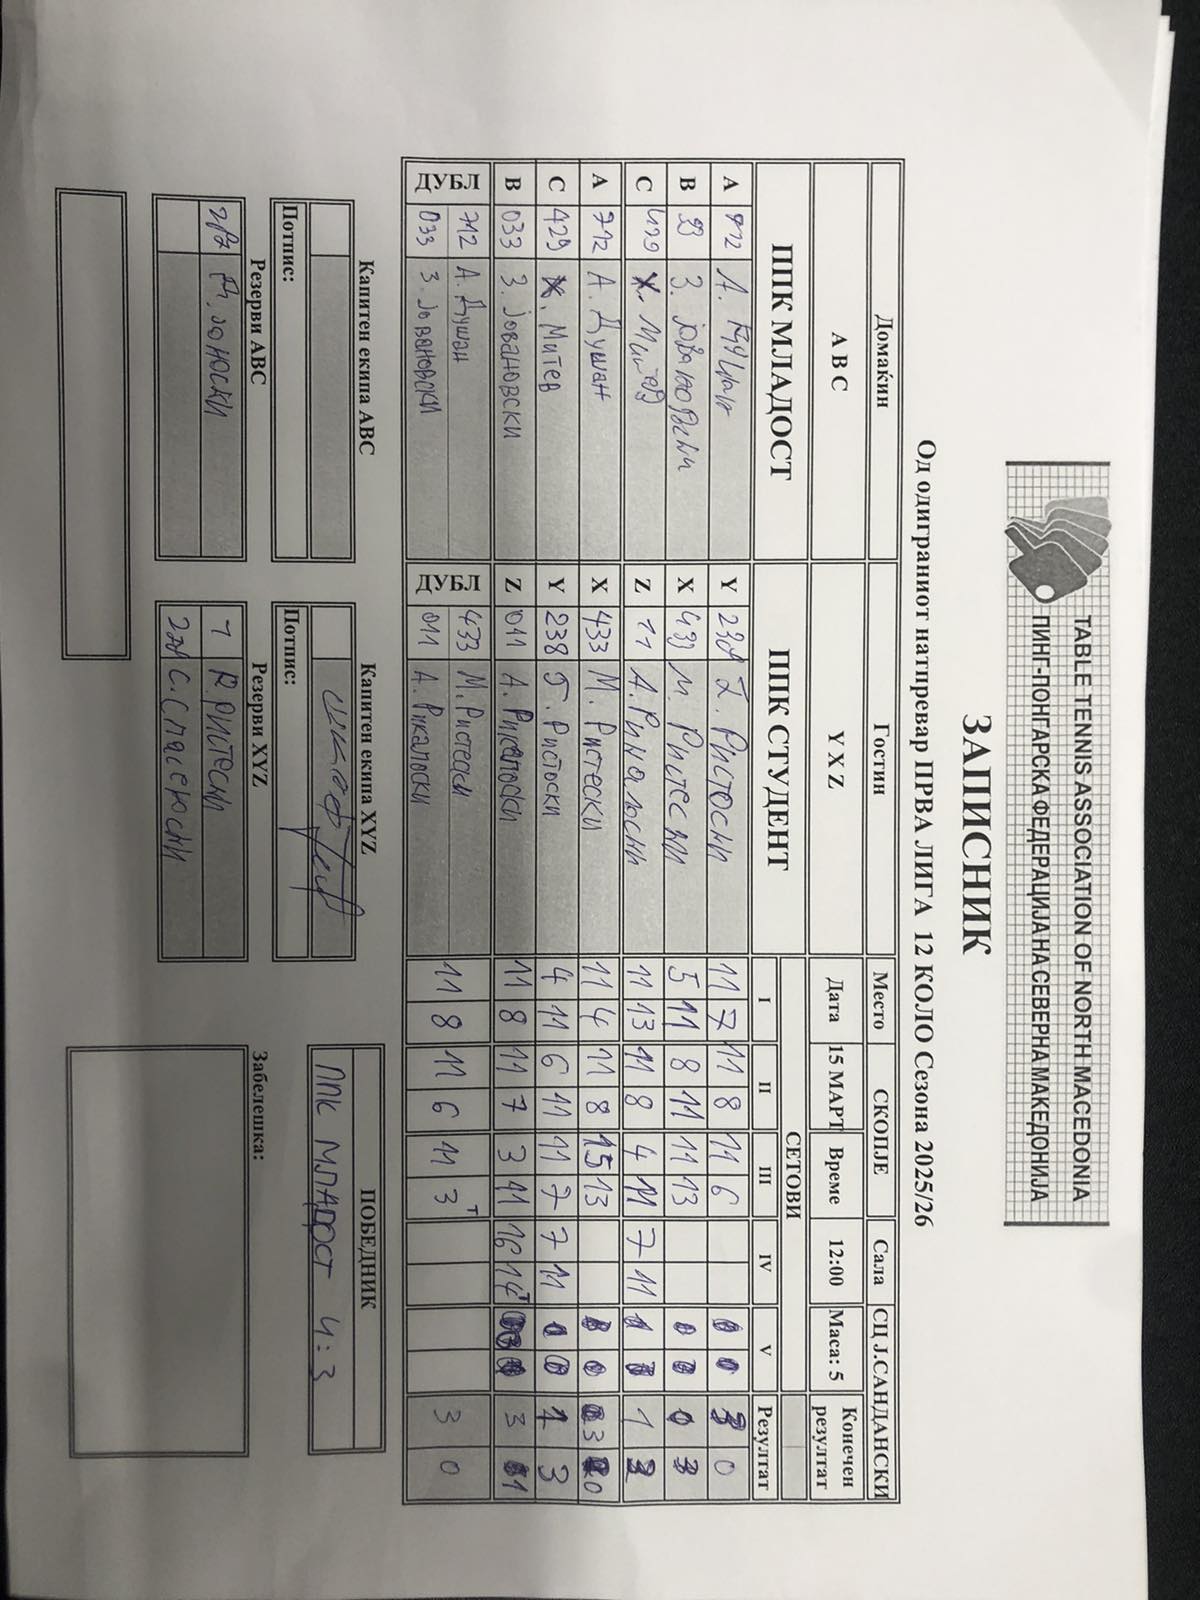 TABLE TENNIS ASSOCIATION OF NORTH MACEDONIA
ПИНГ-ПОНГАРСКА ФЕДЕРАЦИЈА НА СЕВЕРНА МАКЕДОНИЈА
ЗАПИСНИК
Од одиграниот натпревар ПРВА ЛИГА 12 КОЛО Сезона 2025/26
Домаќин Гостин Место СКОПЈЕ Сала СЦ Ј.САНДАНСКИ
A B C Y X Z Дата 15 МАРТ Време 12:00 Маса: 5 Конечен резултат
ППК МЛАДОСТ ППК СТУДЕНТ СЕТОВИ
I II III IV V Резултат
A 712 А. Душан Y 238 Г. Ристоски 11 7 11 8 11 6 3 0
B 33 З. Јовановски X 433 М. Ристески 5 11 8 11 11 13 0 3
C 429 Митев Z 11 А. Рикалоски 11 13 11 8 4 11 7 11 1 3
A 712 А. Душан X 433 М. Ристески 11 4 11 8 15 13 3 0
C 429 Митев Y 238 Г. Ристоски 4 11 6 11 11 7 7 11 1 3
B 033 З. Јовановски Z 011 А. Рикалоски 11 8 11 7 3 11 16 14 т 3 1
ДУБЛ 712 А. Душан ДУБЛ 433 М. Ристески 11 8 11 6 11 3 т 3 0
033 З. Јовановски 011 А. Рикалоски
Капитен екипа ABC Капитен екипа XYZ ПОБЕДНИК
Потпис: Потпис: ППК МЛАДОСТ 4:3
Резерви ABC Резерви XYZ Забелешка:
1 Р. Ристески